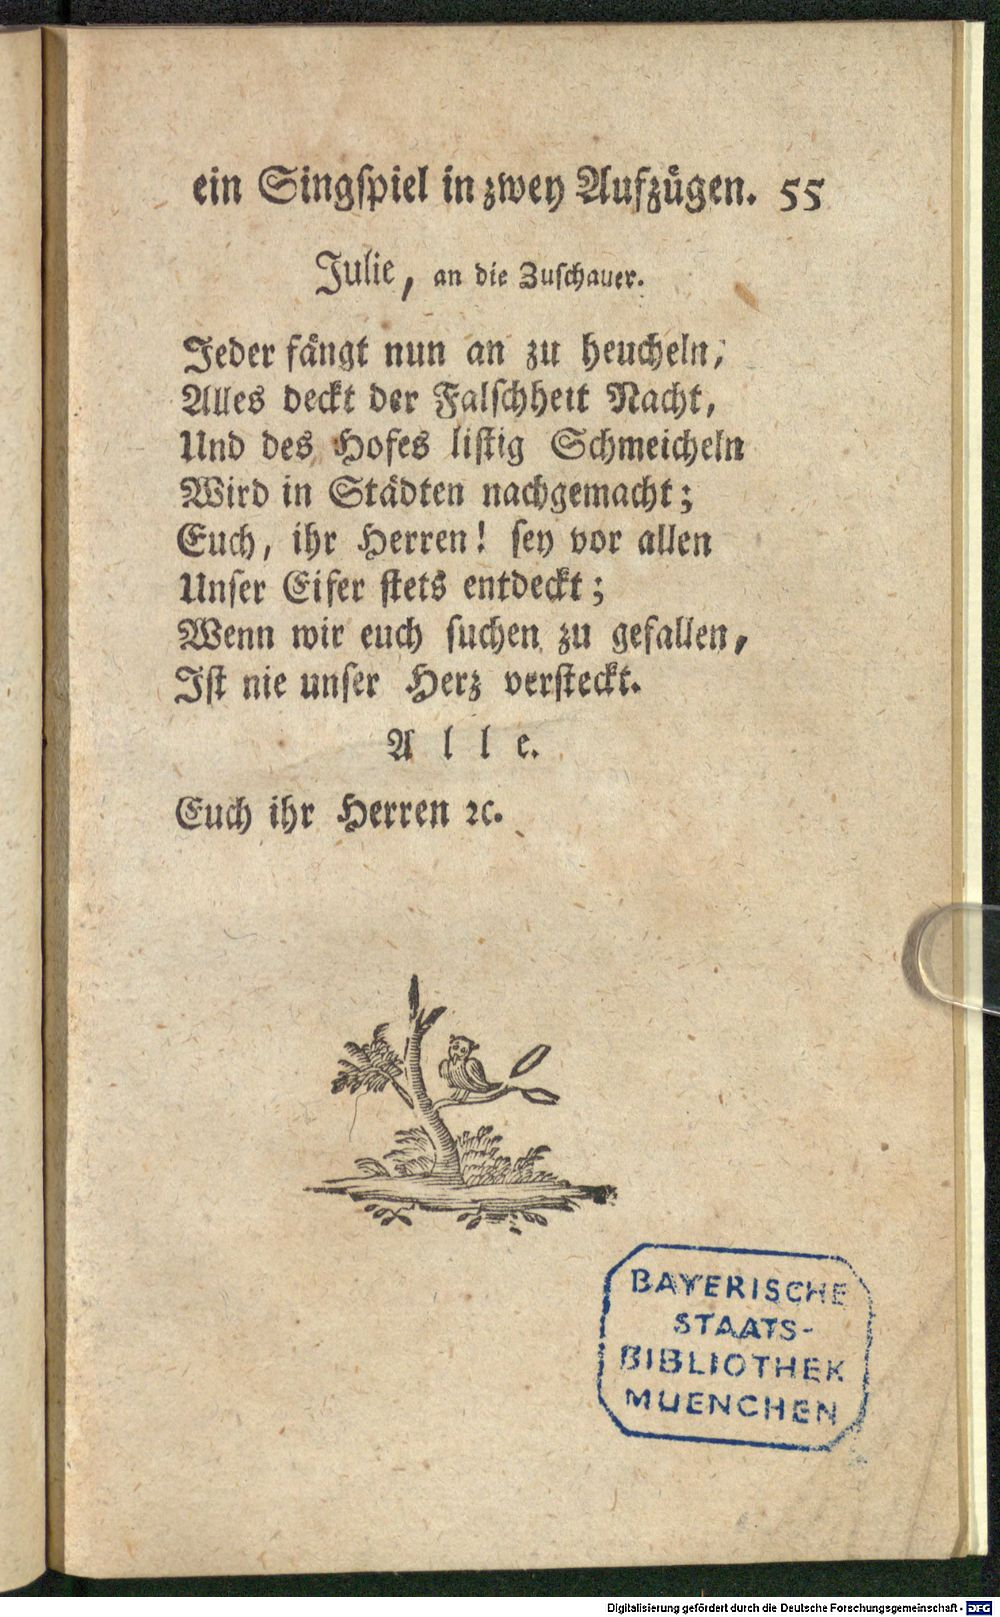 ein Singſpiel in zwey Aufzügen. 55
Julie, an die Zuſchauer.
Jeder fängt nun an zu heucheln,
Alles deckt der Falſchheit Nacht,
Und des Hofes liſtig Schmeicheln
Wird in Städten nachgemacht;
Euch, ihr Herren! ſey vor allen
Unſer Eifer ſtets entdeckt;
Wenn wir euch ſuchen zu gefallen,
Iſt nie unſer Herz verſteckt.
Alle.
Euch ihr Herren ꝛc.
BAYERISCHE
STAATS-
BIBLIOTHEK
MUENCHEN
Digitalisierung gefördert durch die Deutsche Forschungsgemeinschaft - DFG